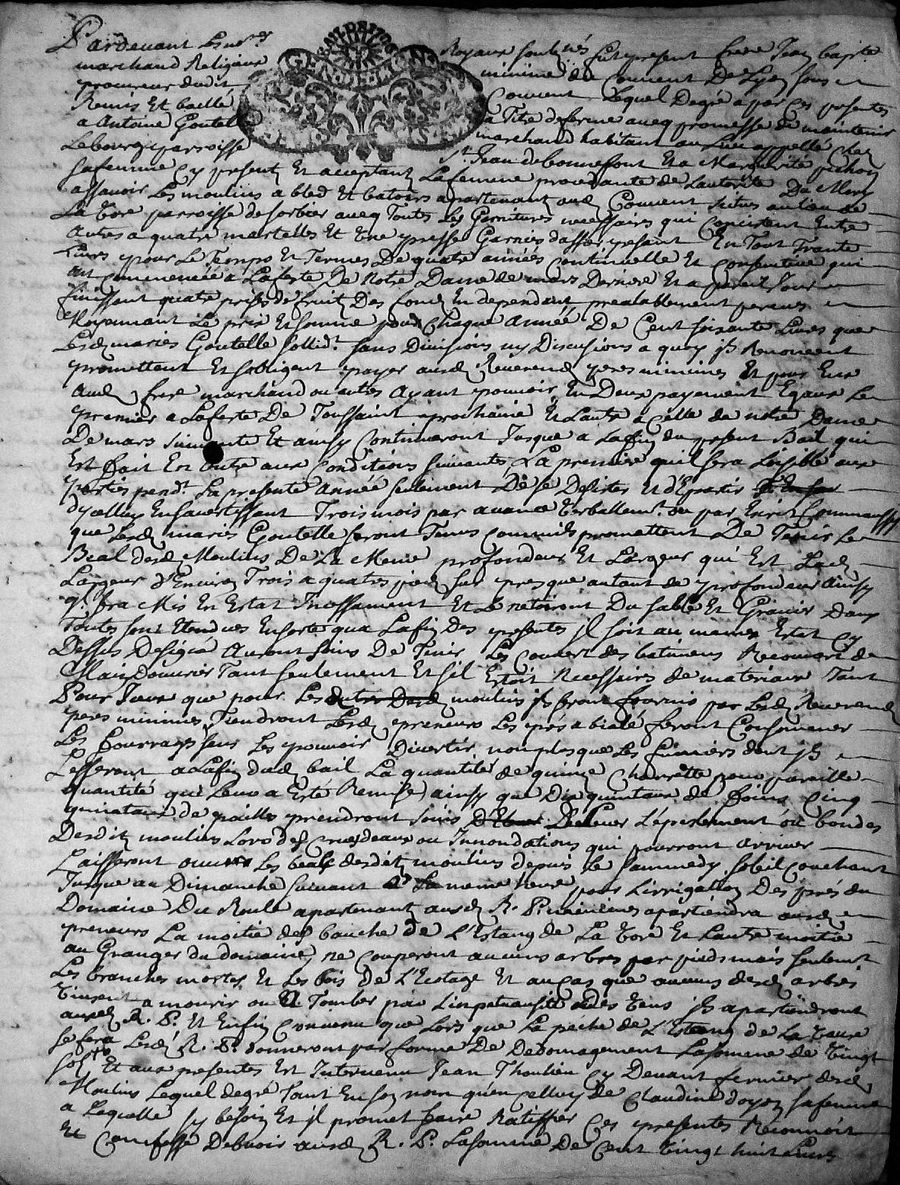 Pardevant Les no.res Royaux soub.nés fut present frere Jean bap.te
marchand Religieux minime du Couvent De Lyon sous
procureur dudit Couvent Lequel Degré a par Ces presentes
Remis Et baille a Titre de ferme aveq promesse de maintenir
a Antoine Goutelle marchand habitant au Lieu appellé chez
Lebourg parroisse St Jean de bonnefont Et a Marguerite pichon
sa femme Cy present Et acceptant La femme procedante de Lautorité Du Mary
assavoir Les moulins a bled Et batoirs apartenant aud Couvent sictués au Lieu de
La Tore parroisse de sorbier aveq Toutes Les Garnitures necessaires qui Consistent Entre
autres a quatre martelles Et Une presse Garnies daffer pesant En Tout Trante
Livres pour Le Temps Et Termes De quatre années Continuelle Et Consecutive qui
ont Commencée a La feste De Notre Dame de mars Derniere Et a pareil Jour
finissant quatre prises de fruit Des fonds En dependant prealablement perçues
Moyennant Le prix Et somme pour Chaque Année De Cent soisante Livres que
Lesd mariés Goutelle sollid.t sans Divisions ny Discusions a quoy ils Renoncent
promettent Et sobligent payer ausd Reverend peres minimes Et pour Eux
Aud frere marchand ou autres Ayant pouvoir En Deux payement Egaux Le
premier a La feste De Toussaint prochaine Et Lautre a Celle de notre Dame
De mars suivante Et ainsy Continueront Jusque a La fin du present Bail qui
Est fait En Outre aux Conditions suivantes La premiere quil sera Loisible aux
parties pend.t La presente Année seulement De se Desister Et departir
dycelluy En savertissant Trois mois par avance Verballem.t ou par Ecrit
que Lesd mariés Goutelle seront Tenus comme ils promettent De Tenir Le
Beal desd Moulins De La Meme profondeur Et Largeur qui Est Lad
Largeur d'Environ Trois a quatres pieds sur presque autant de profondeur ainsy
q.l sra Mis En Estat Incessament Et Le netoiront Du sable Et Gravier Dans
Toutes son Etendues Ensorte qua La fin Des presentes il soit au mêmes Etat Cy
Dessus Designé auront soins De Tenir Les Couvert des batimens Recouvert de
Main Douvrier Tant seulement Et sil Estoit Necessaires de materiaux Tant
Pour Iceux que pour Les moulins ils sront fournis par Lesd Reverend
peres minimes Tiendront Lesd preneurs Les prés a biale feront Consommer
Les fourrages sans Les pouvoir Divertir non plus que Les fumiers dont ils
Lesseront a La fin dud bail La quantité de quinze Charrette pour pareille
quantité qui Leur a Esté Remise, ainsy que Dix quintaux de foins Cinq
quintaux de pailles prendront soins L'épenchement ou bondes
Desdit moulins Lors des Crues deaux ou Innondations qui pourront arriver
Laisseront ouvert Les beals desdit moulins depuis Le sammedy soleil Couchant
Jusque au Dimanche suivant meme heure pour L'irrigation Des prés du
Domaine Du apartenant ausd R. P. minimes apartiendra ausd
preneurs La moitié des bauche de L'Estang de La Tore Et Lautre moitié
au Granger du domaine, ne Couperont aucuns arbres par pieds mais seulemt
Les branches mortes Et Les bois de L'Ecotage Et au Cas que aucuns desd arbres
Vinsent a mourir ou a Tomber par Limpetuosité des Tens ils apartiendront
ausd R. P. Et Enfin Convenu que Lors que La peche de L'Estang de La Taure
se fera Lesd R. P. donneront par forme De Dedomagement La somme de Vingt
sols Et aux presentes Est Intervenu Jean Thoulieu Cy Devant fermier desd
Moulins Lequel degré Tant En son nom qu'en celluy de Claudine doyon sa femme
a Laquelle sy besoin Et il promet faire Ratiffier Ces presentes Reconnoit
Et Confesse Debvoir ausd R. P. La somme De Cent Vingt huit Livres